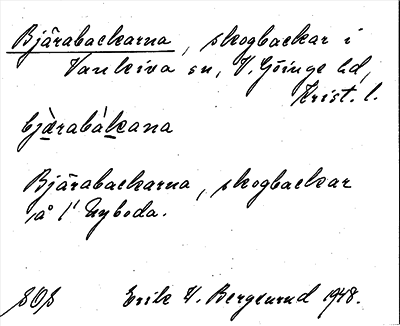 Bjärabackarna, skogbackar i
Vankiva sn, V. Göinge hd,
Krist. l.
bjàrabàkana
Bjärabackarna, skogbackar
på 1' Nyboda.
SOS Erik V. Bergstrand 1948.